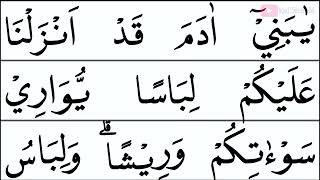 يٰبَنِيْٓ اٰدَمَ قَدْ اَنْزَلْنَا
عَلَيْكُمْ لِبَاسًا يُّوَارِيْ
سَوْءٰتِكُمْ وَرِيْشًاۗ وَلِبَاسُ